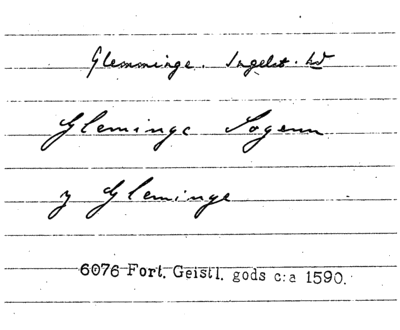 Glemminge. Ingelst. hd
Gleminge Sogenn
y Gleminge
6076 Fort. Geistl. gods c:a 1590.